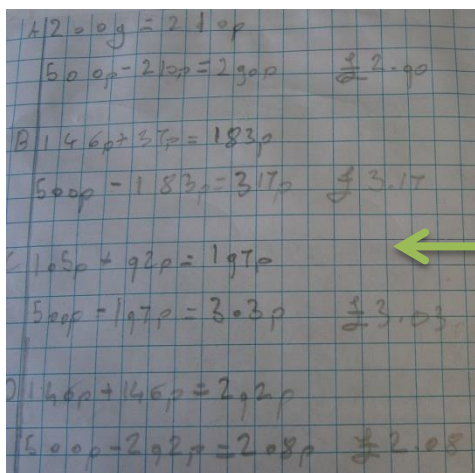 A 200g = 210p
500p - 210p = 290p £2.90
B 146p + 37p = 183p
500p - 183p = 317p £3.17
C 105p + 92p = 197p
500p - 197p = 303p £3.03
D 146p + 146p = 292p
500p - 292p = 208p £2.08